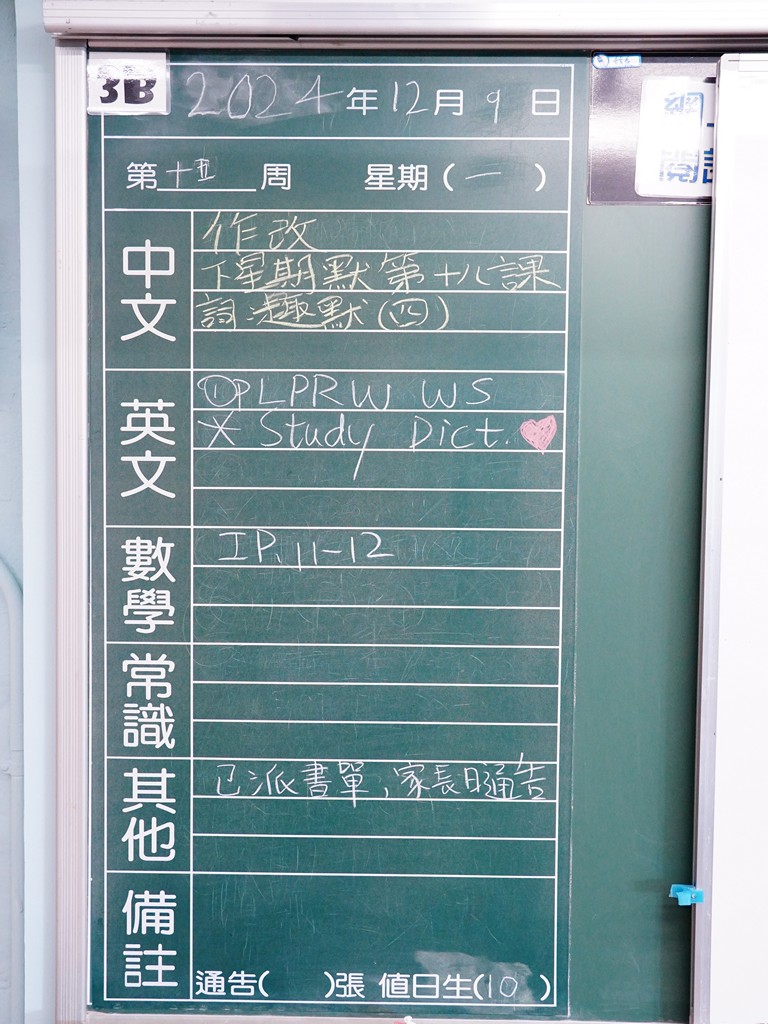 3B
2024年12月9日
第十五周 星期(一)
中文
作改
下星期默第十八課
詞,趣默(四)
英文
①PLPRW WS
* Study Dict. ♥
數學
IP.11-12
常識
其他
已派書單,家長日通告
備註
通告( )張 值日生(10)
網上
閱